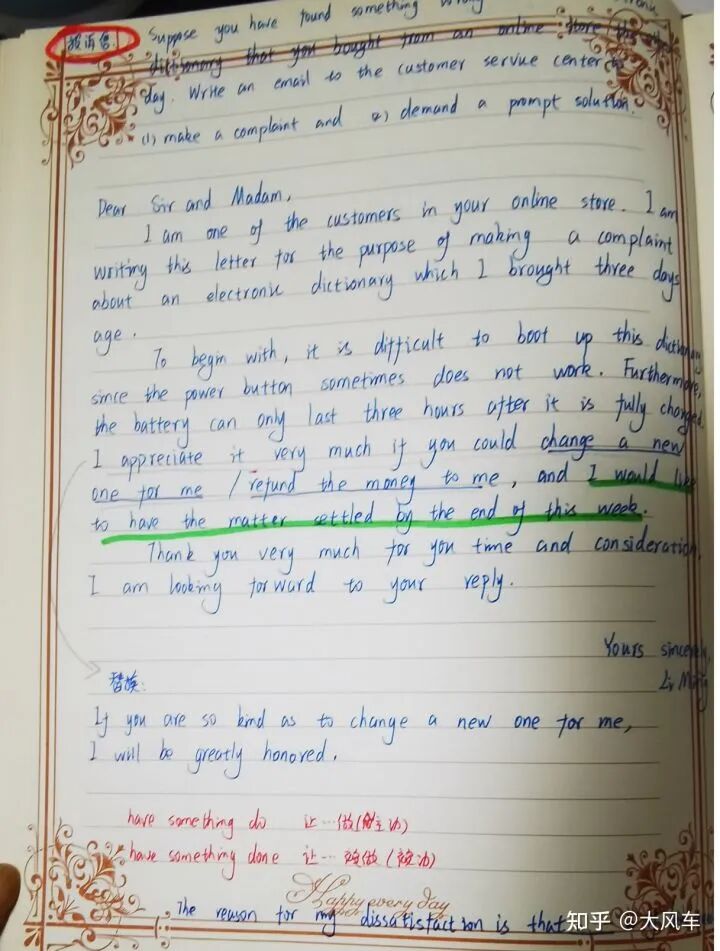 投诉信: Suppose you have found something wrong
dictionary that you bought from an online store the other
day. Write an email to the customer service center to
(1) make a complaint and (2) demand a prompt solution.
Dear Sir and Madam,
I am one of the customers in your online store. I am
writing this letter for the purpose of making a complaint
about an electronic dictionary which I brought three days
age.
To begin with, it is difficult to boot up this dictionary
since the power button sometimes does not work. Furthermore,
the battery can only last three hours after it is fully charged.
I appreciate it very much if you could change a new
one for me / refund the money to me, and I would like
to have the matter settled by the end of this week.
Thank you very much for you time and consideration.
I am looking forward to your reply.
Yours sincerely,
Li Ming
替换:
If you are so kind as to change a new one for me,
I will be greatly honored.
have something do 让…做(主动)
have something done 让…被做(被动)
Happy every day
The reason for my dissatisfaction is that
知乎 @大风车